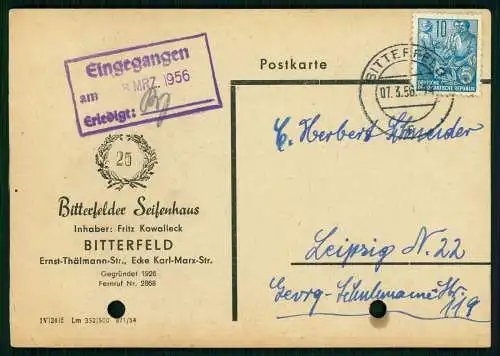 Eingegangen
am 8. MRZ. 1956
Erledigt:
Postkarte
10
DEUTSCHE
DEMOKRATISCHE REPUBLIK
BITTERFELD
07.3.56
25
Bitterfelder Seifenhaus
Inhaber: Fritz Kowalleck
BITTERFELD
Ernst-Thälmann-Str., Ecke Karl-Marx-Str.
Gegründet 1926
Fernruf Nr. 2868
Herbert Schneider
Leipzig N. 22
Georg-Schuhmann-Str.
119